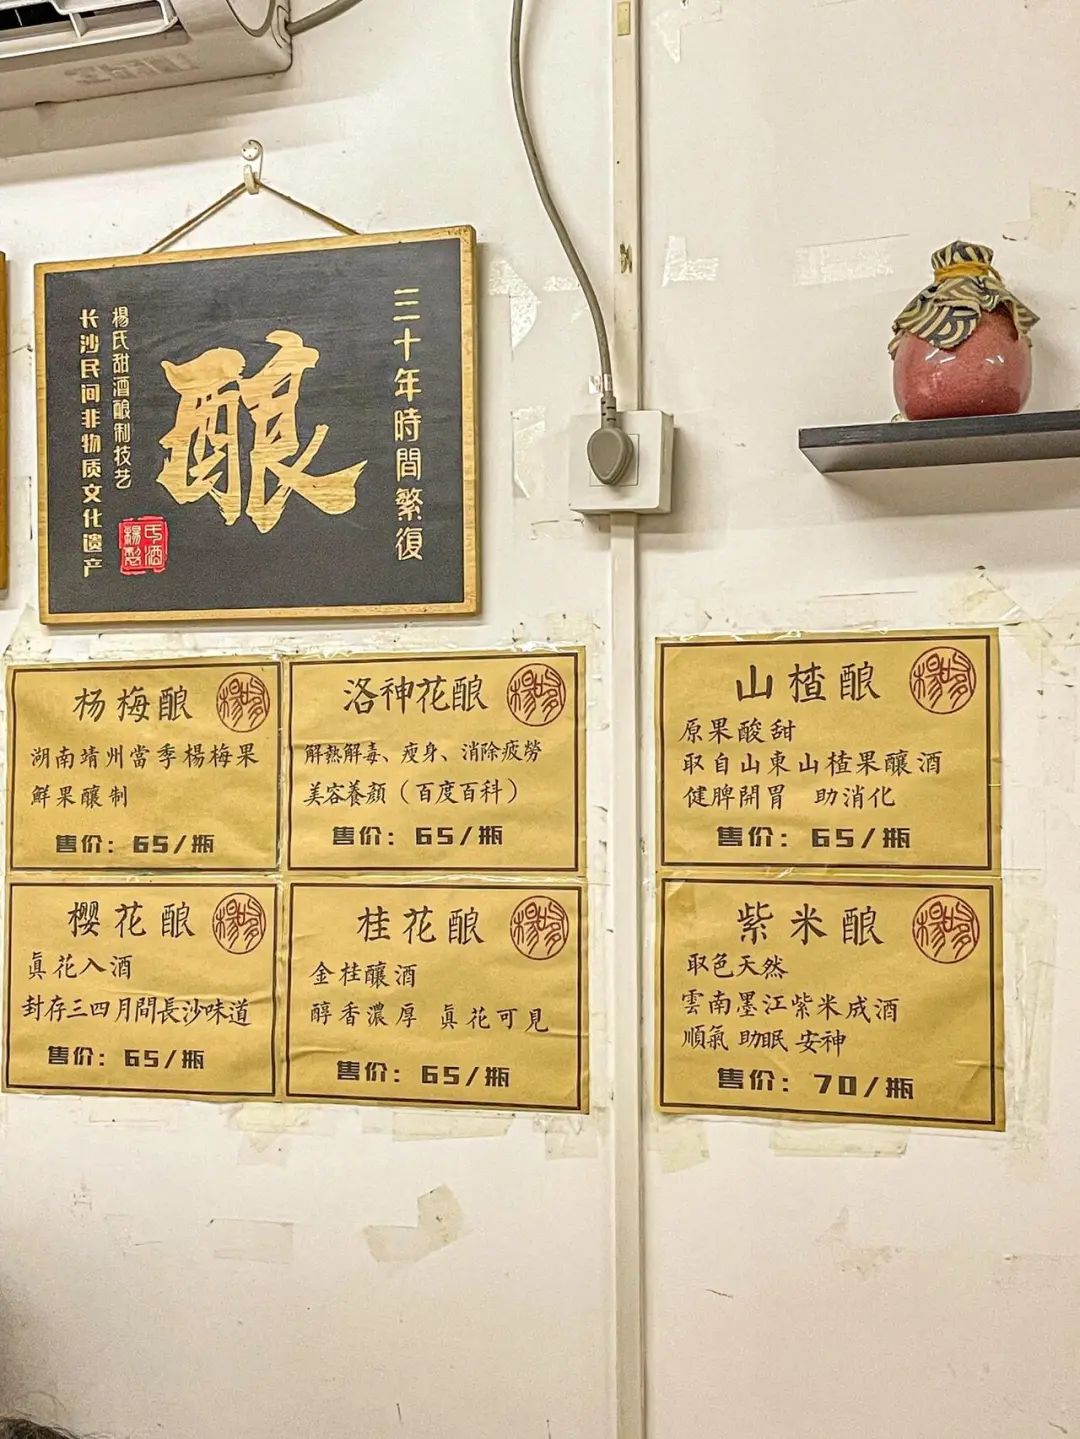 三十年時間繁復
酿
楊氏甜酒酿制技艺
长沙民间非物质文化遗产
杨梅酿
湖南靖州當季楊梅果
鮮果釀制
售价：65/瓶
洛神花酿
解熱解毒、瘦身、消除疲勞
美容養顏（百度百科）
售价：65/瓶
山楂酿
原果酸甜
取自山東山楂果釀酒
健脾開胃 助消化
售价：65/瓶
樱花酿
真花入酒
封存三四月間長沙味道
售价：65/瓶
桂花酿
金桂釀酒
醇香濃厚 真花可見
售价：65/瓶
紫米酿
取色天然
雲南墨江紫米成酒
順氣 助眠 安神
售价：70/瓶